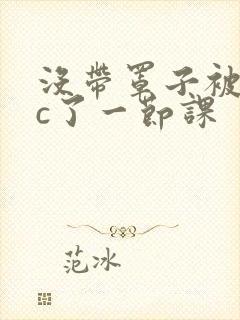 没帶罩子被
c了一節課
范冰